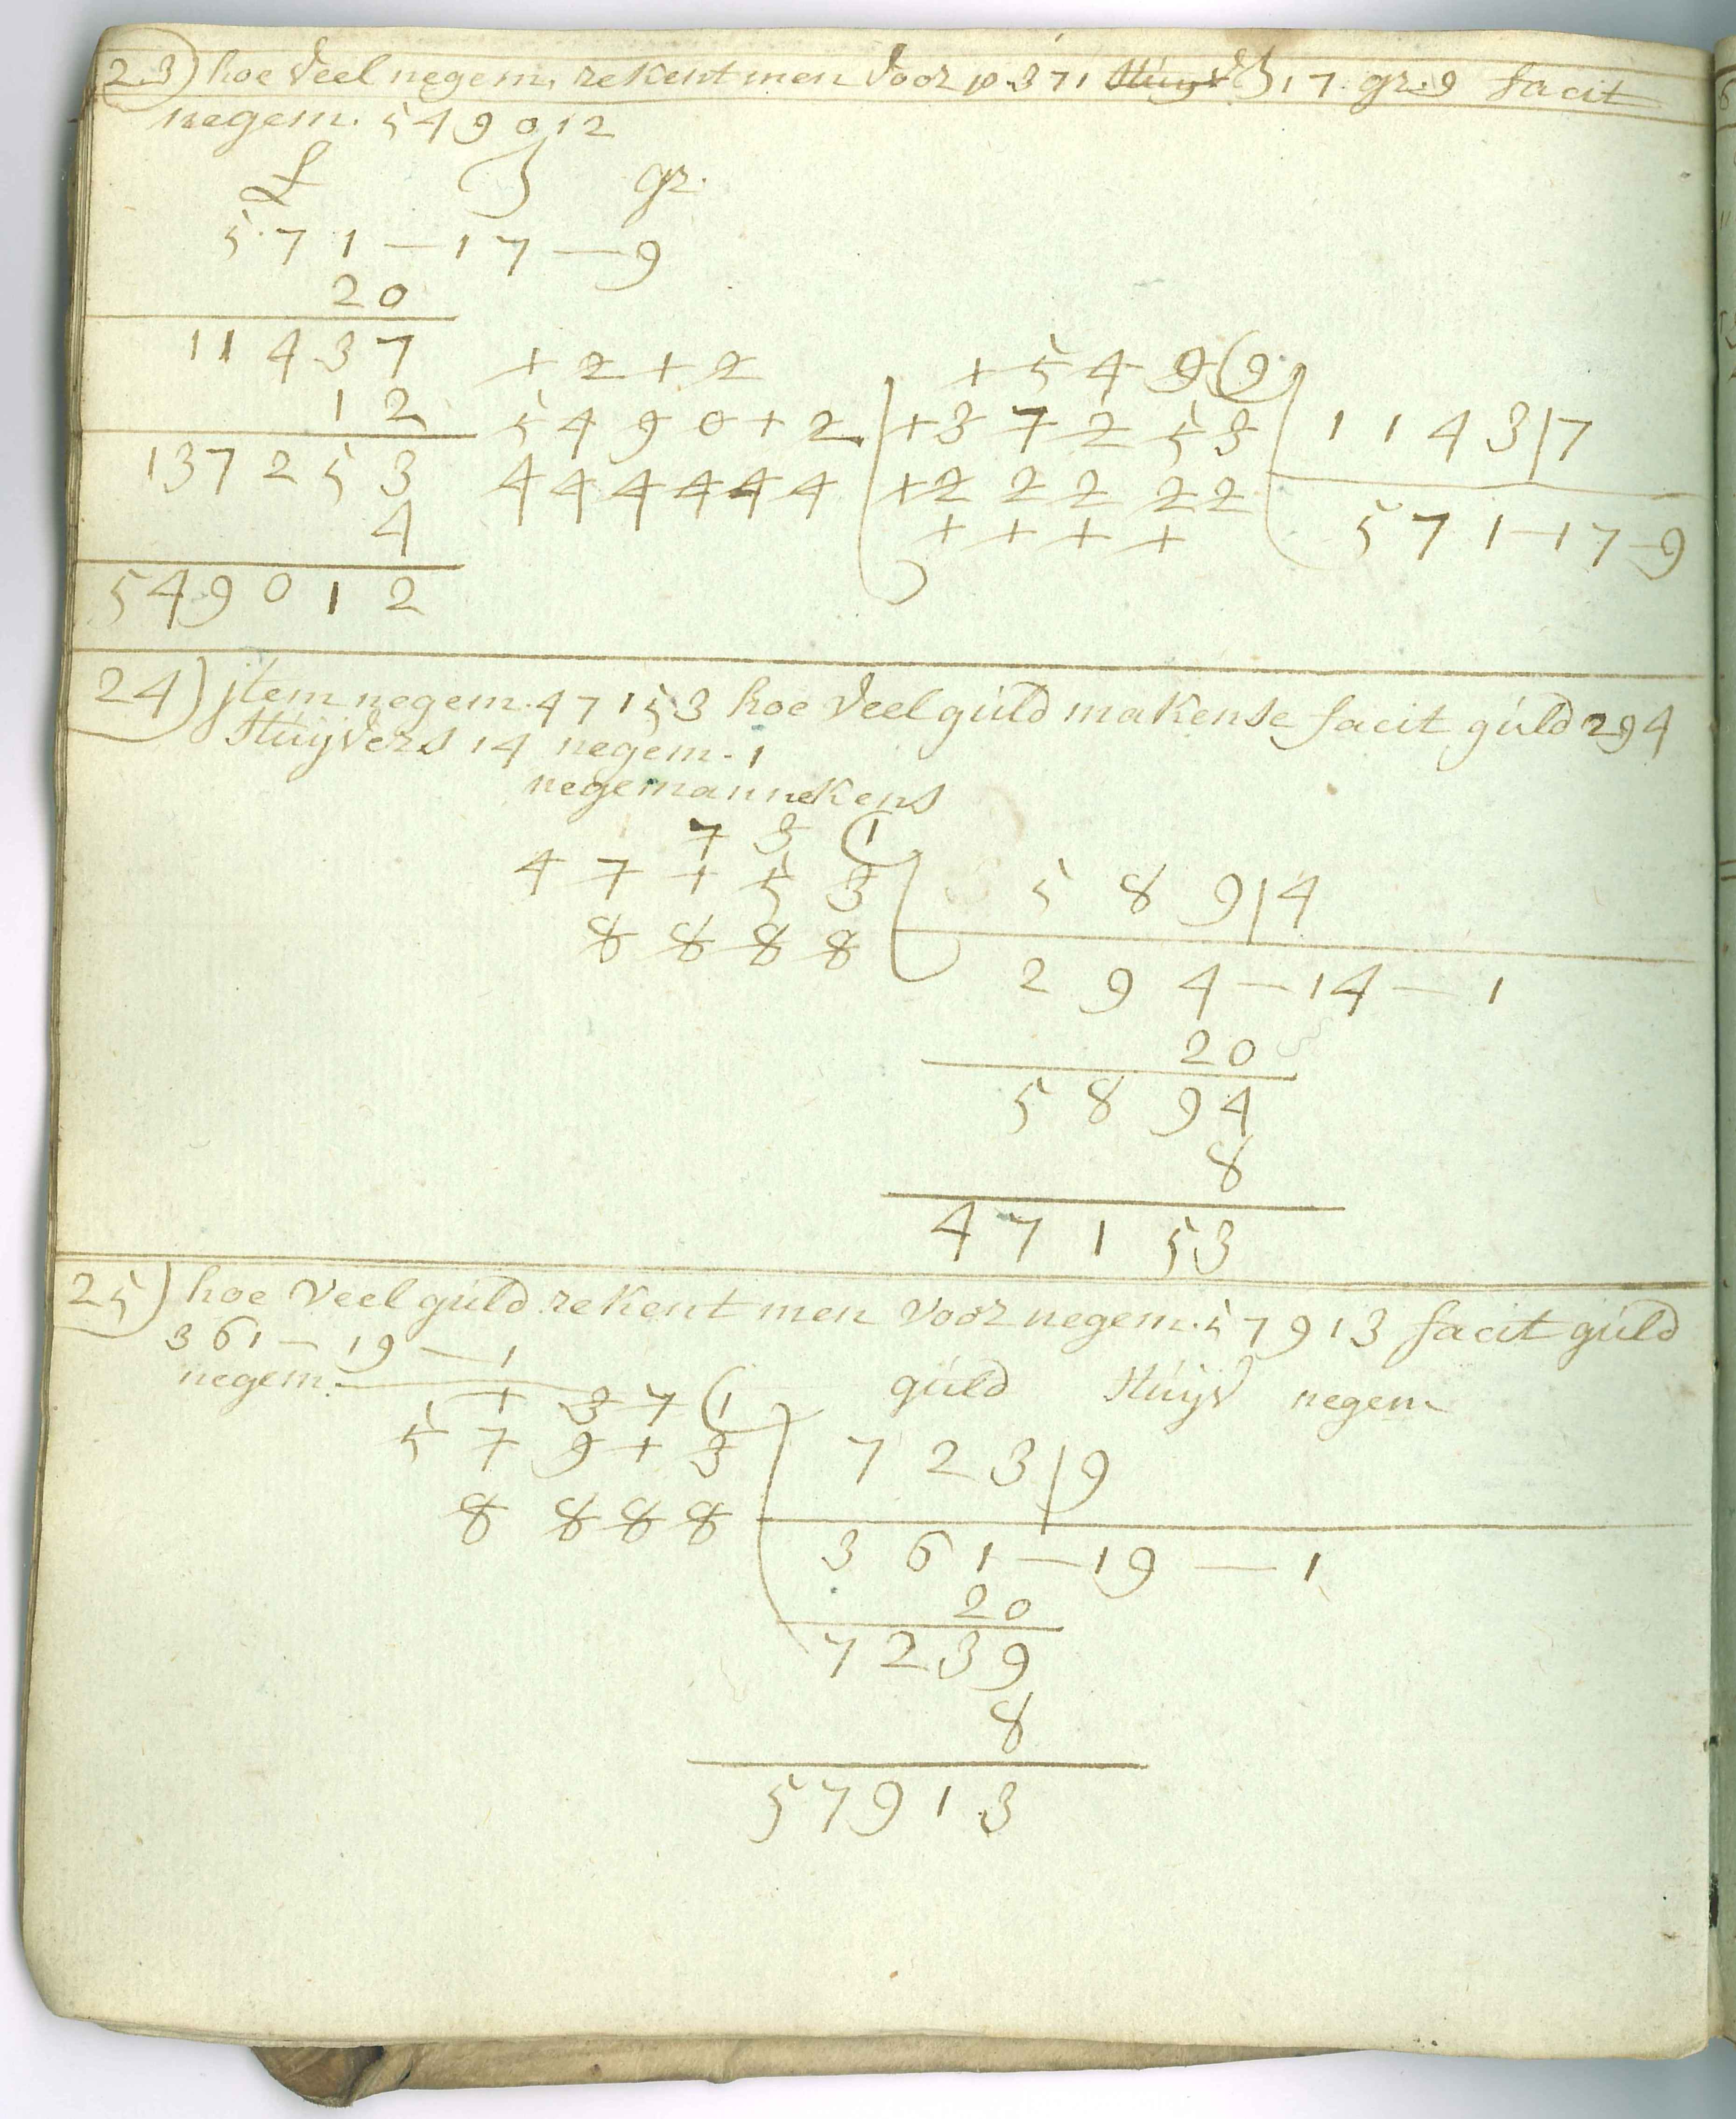 23) hoe veel negem. rekent men voor p. 371 stuyv ß 17 gr. 9 facit
negem. 549012
£ ß gr.
571 — 17 — 9
20
11437
12
137253
4
549012
1 2 1 2
549012
444444
1 5 4 9 (9
137253 | 1143|7
122222 | 571—17—9
1 1 1 1
24) jtem negem. 47153 hoe veel guld makense facit guld 294
stuyvers 14 negem. 1
negemannekens
7 3 (1
47153 | 589|4
8888 | 294 — 14 — 1
20
5894
8
47153
25) hoe veel guld rekent men voor negem. 57913 facit guld
361 — 19 — 1
negem. guld stuyv negem
1 3 7 (1
57913 | 723|9
8888 | 361 — 19 — 1
20
7239
8
57913